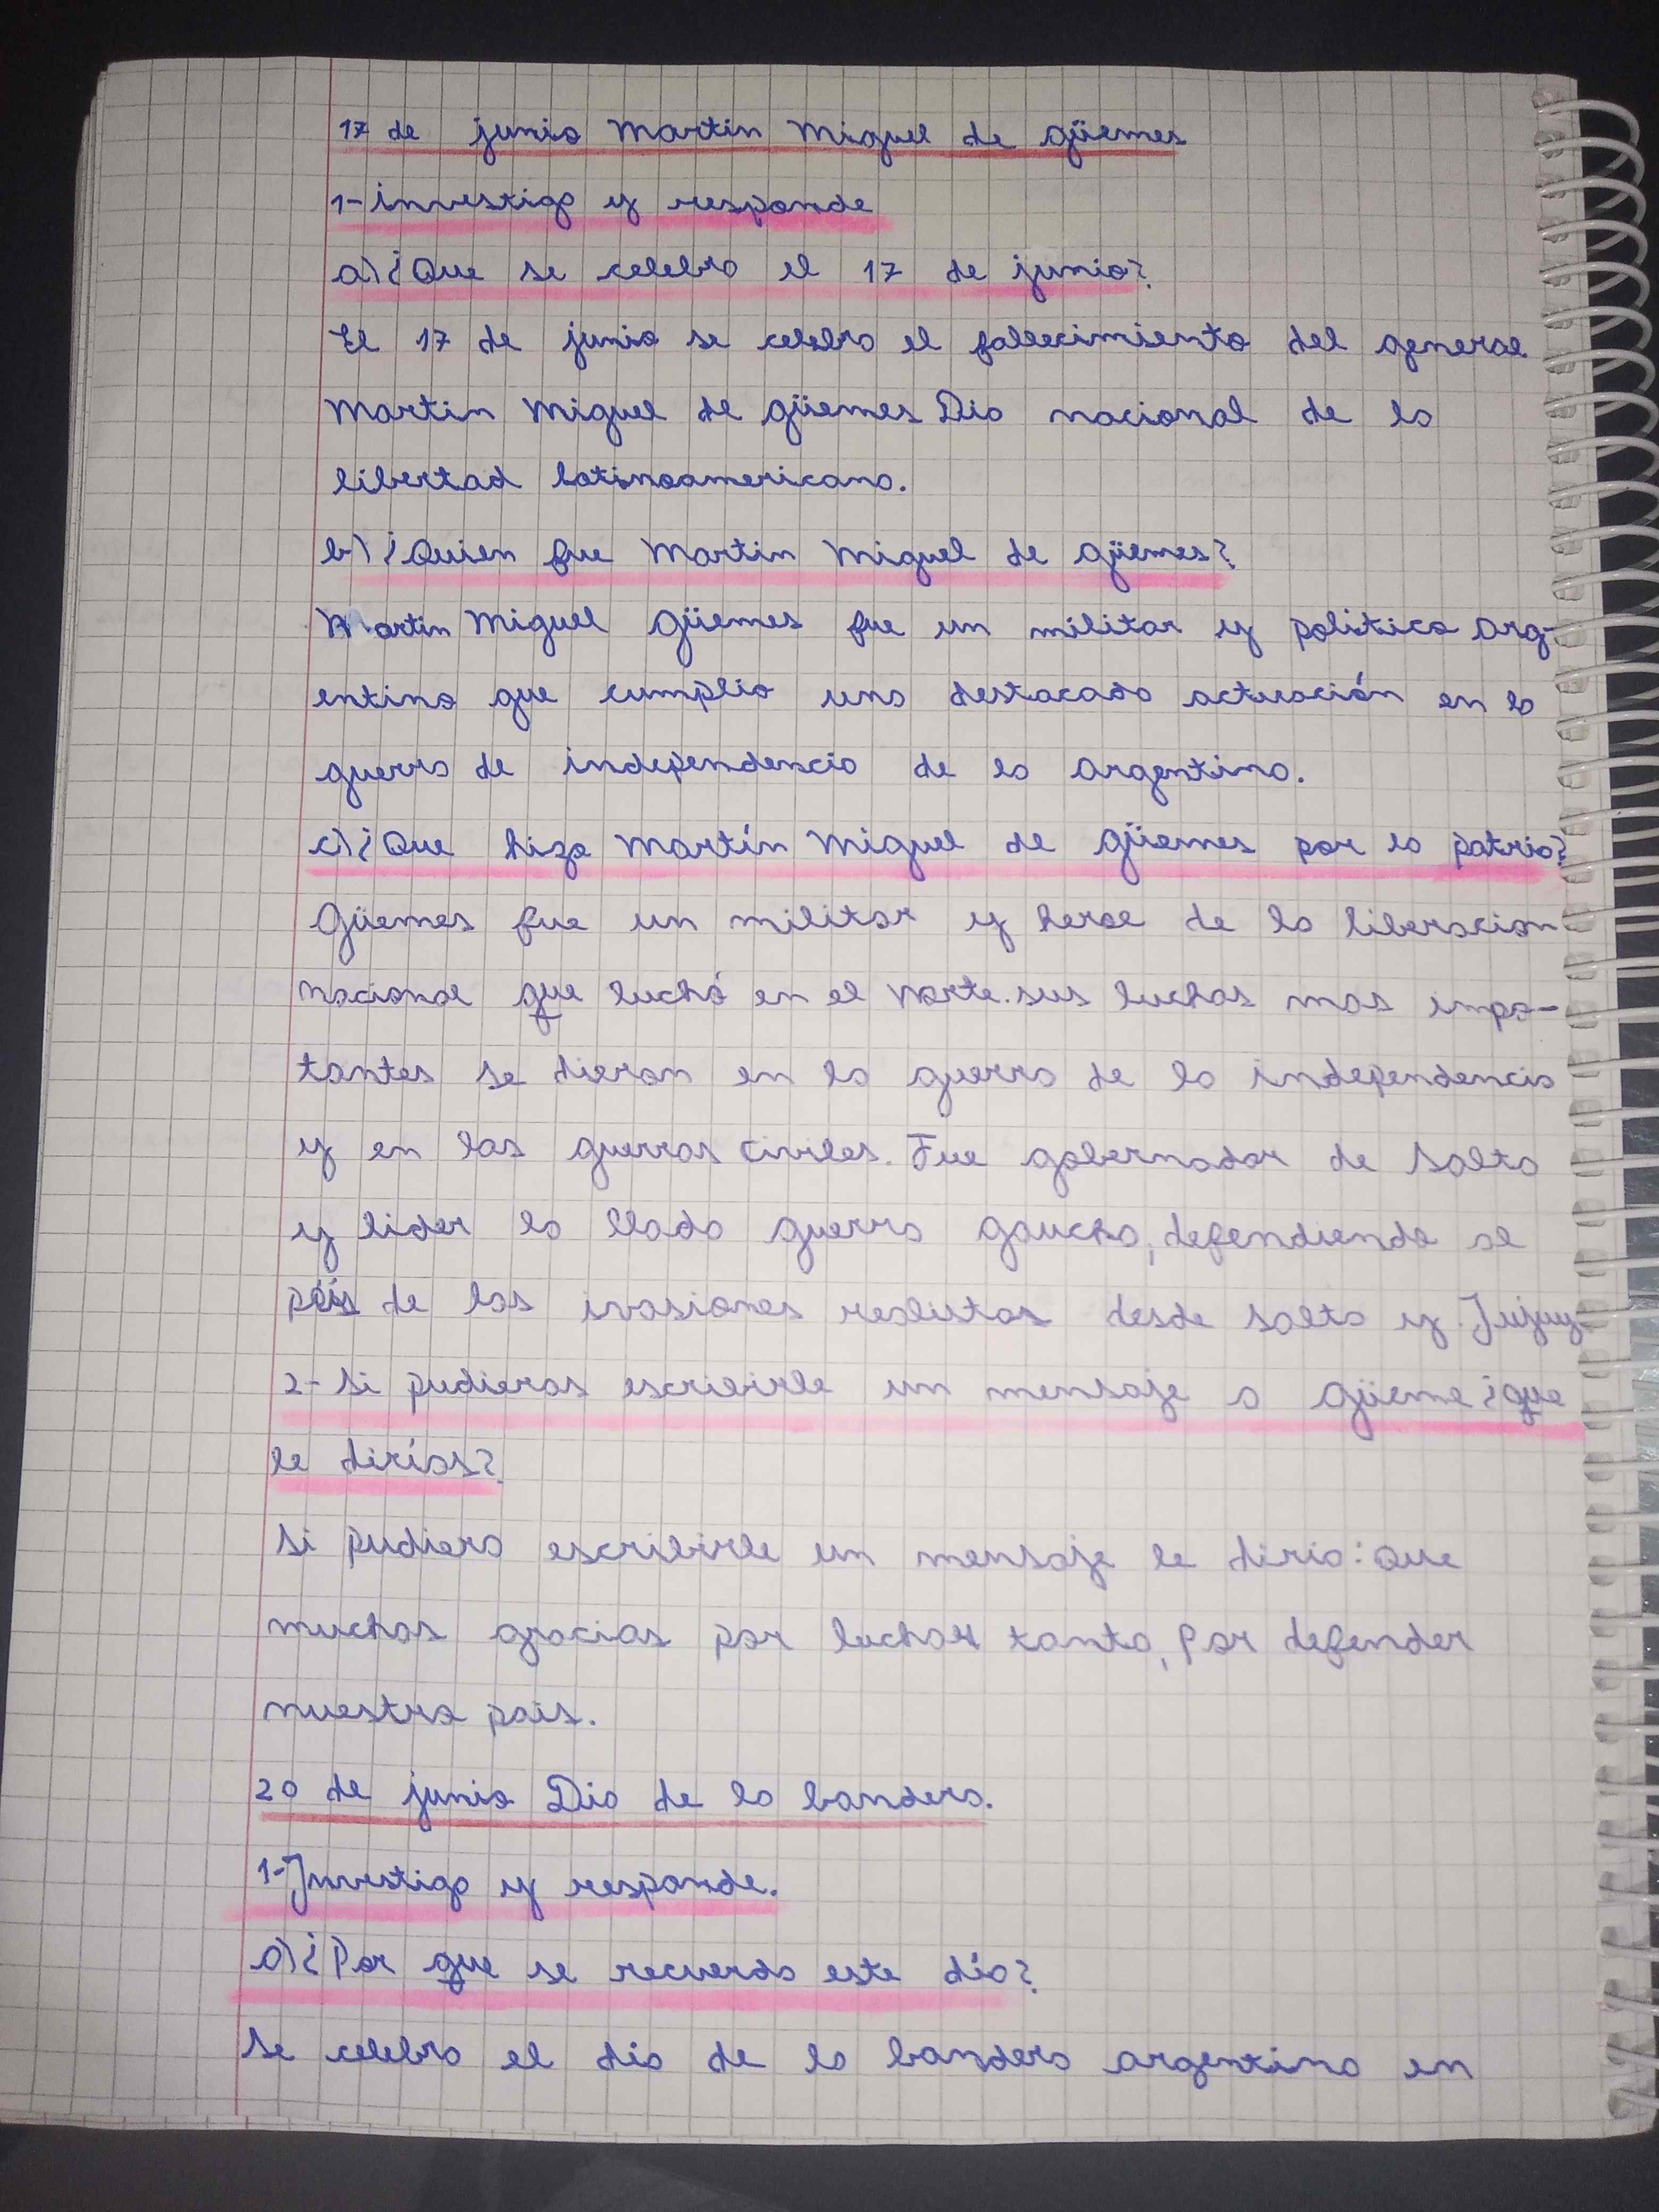 17 de junio Martin Miguel de güemes
1-investiga y responde
a)¿Que se celebra el 17 de junio?
El 17 de junio se celebra el fallecimiento del general
Martin Miguel de güemes Dia nacional de la
libertad latinoamericana.
b)¿Quien fue Martin Miguel de güemes?
Martin Miguel Güemes fue un militar y politico arg-
entino que cumplio una destacada actuación en la
guerra de independencia de la argentina.
c)¿Que hizo Martín Miguel de Güemes por la patria?
Güemes fue un militar y heroe de la liberacion
nacional que luchó en el norte. sus luchas mas impo-
tantes se dieron en la guerra de la independencia
y en las guerras civiles. Fue gobernador de Salta
y lider la llada guerra gaucha, defendiendo al
país de las ivasiones realistas desde salta y Jujuy
2- Si pudieras escribirle un mensaje a güeme ¿que
le dirías?
Si pudiera escribirle un mensaje le diria: que
muchas gracias por luchar tanto, por defender
nuestro pais.
20 de junio Dia de la bandera.
1-Investiga y responde.
a)¿Por que se recuerda este día?
Se celebra el dia de la bandera argentina en